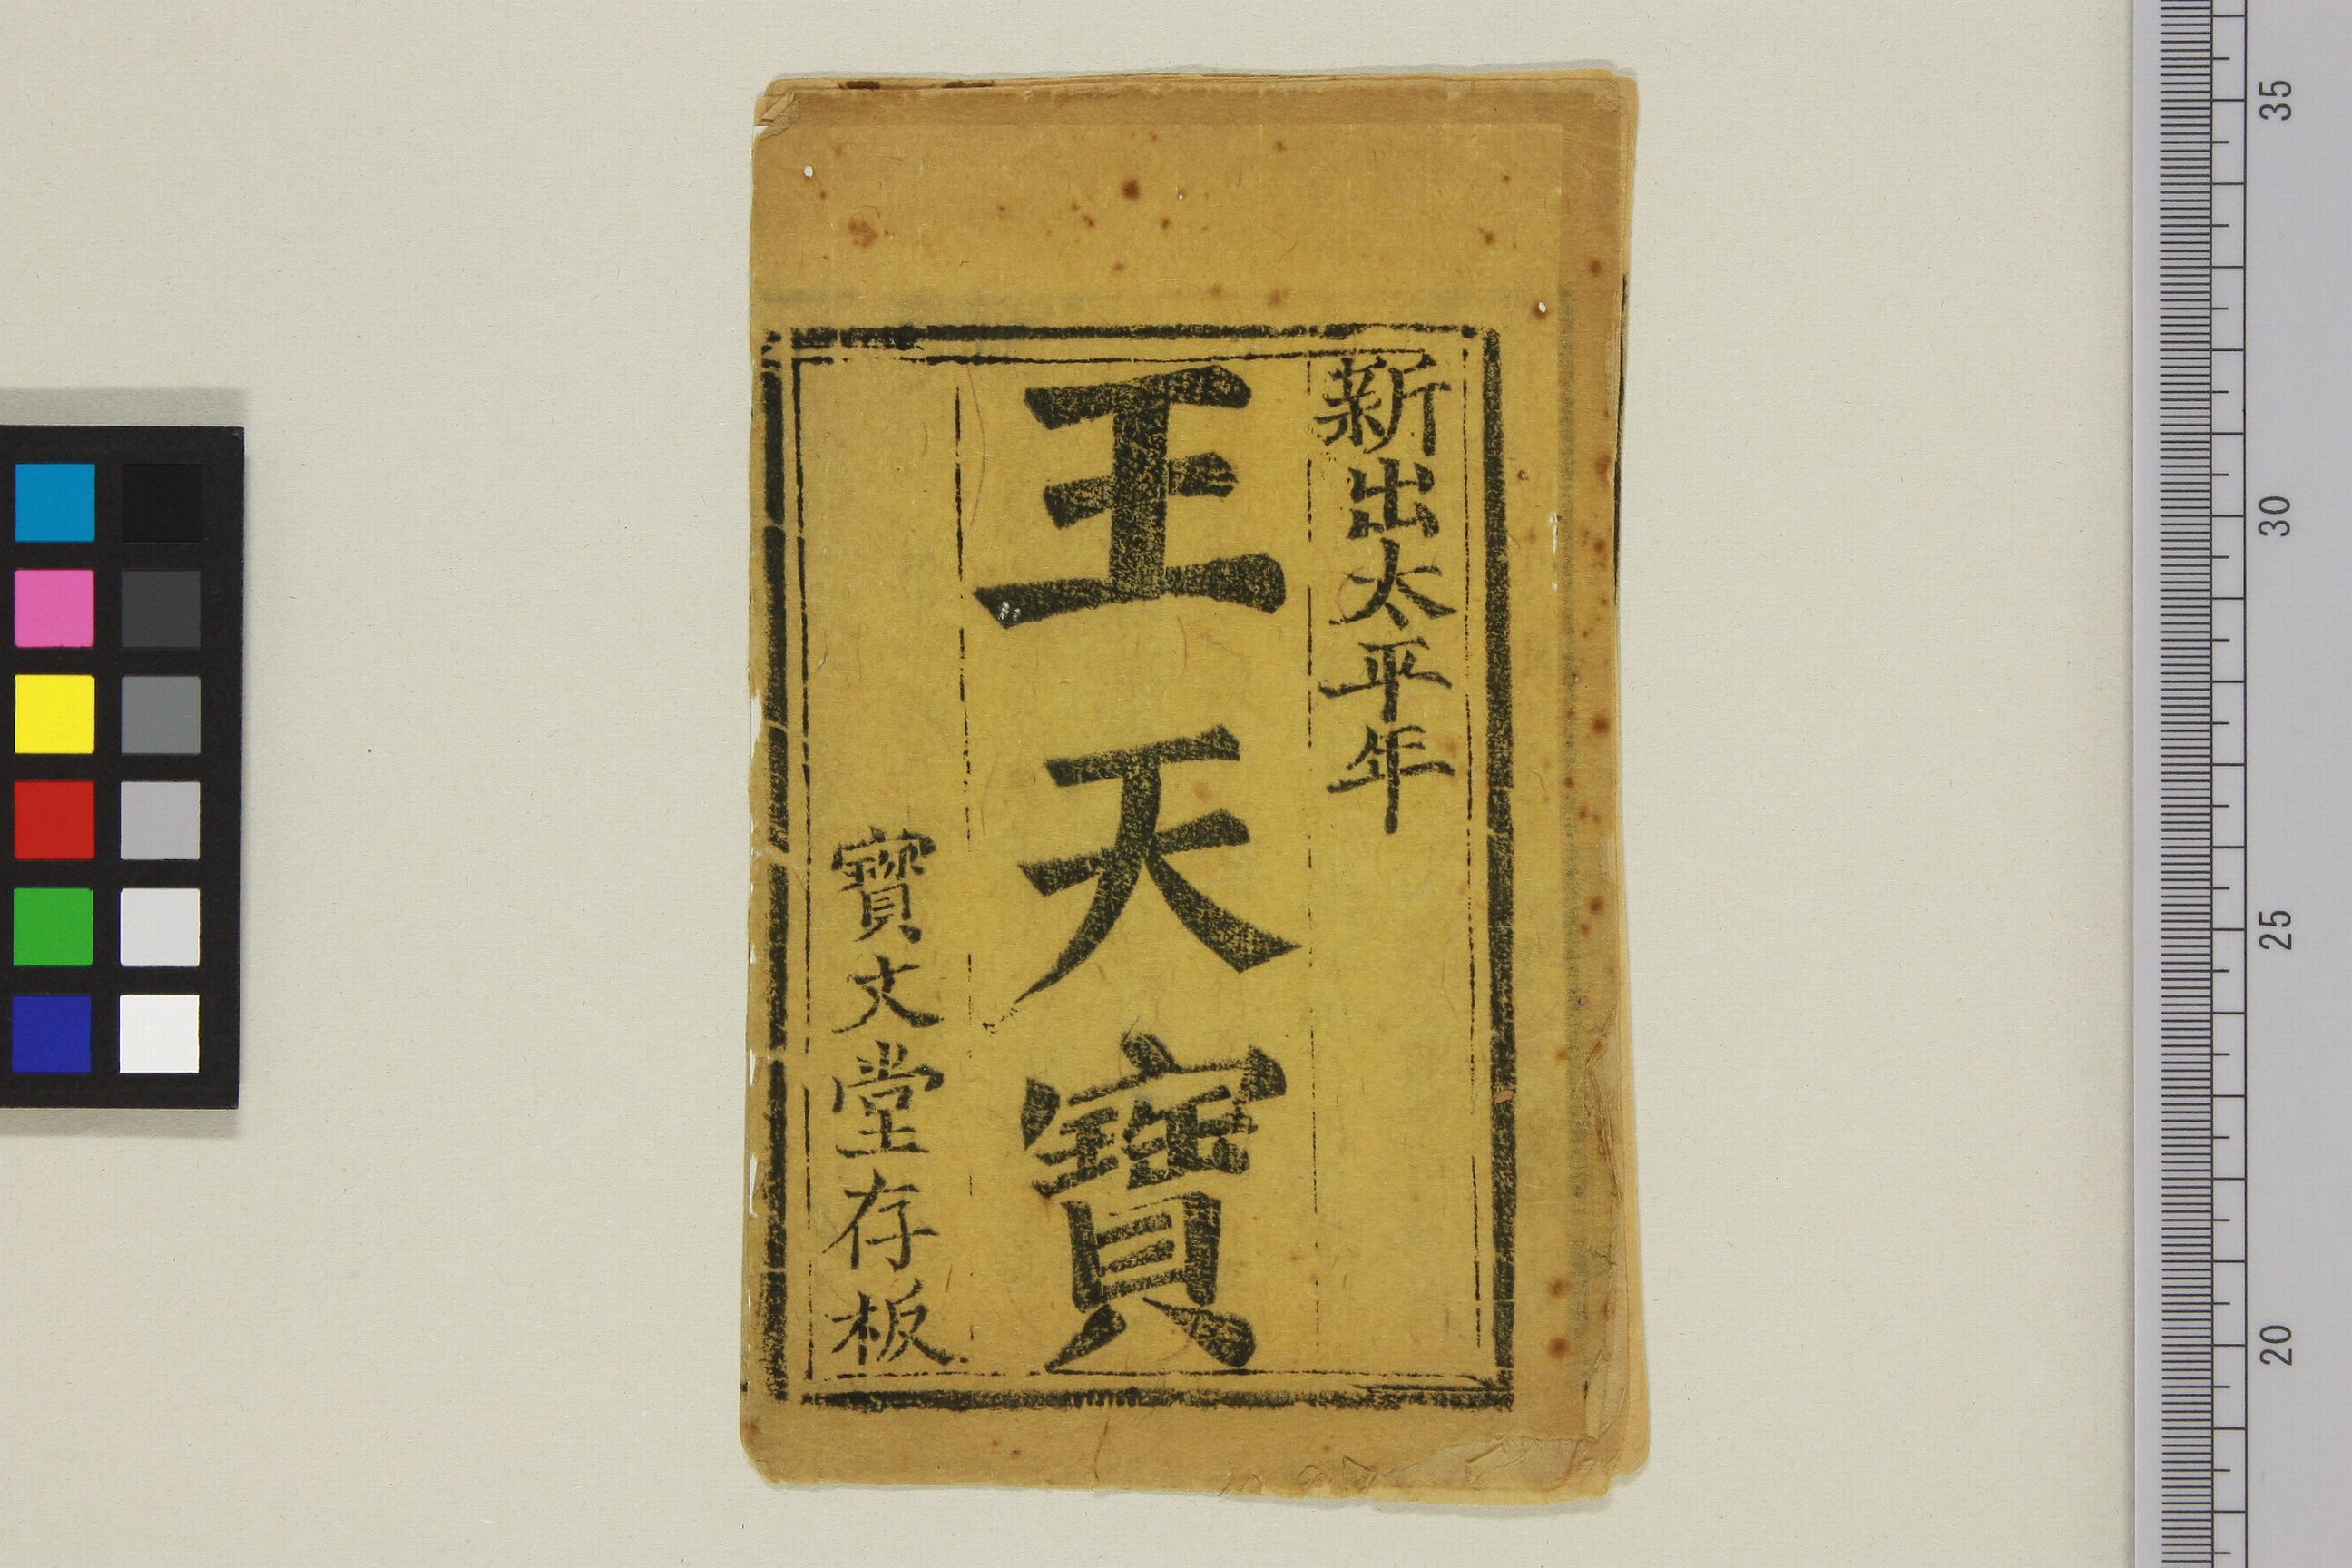 新出太平年
王天寶
寳文堂存板
35
30
25
20